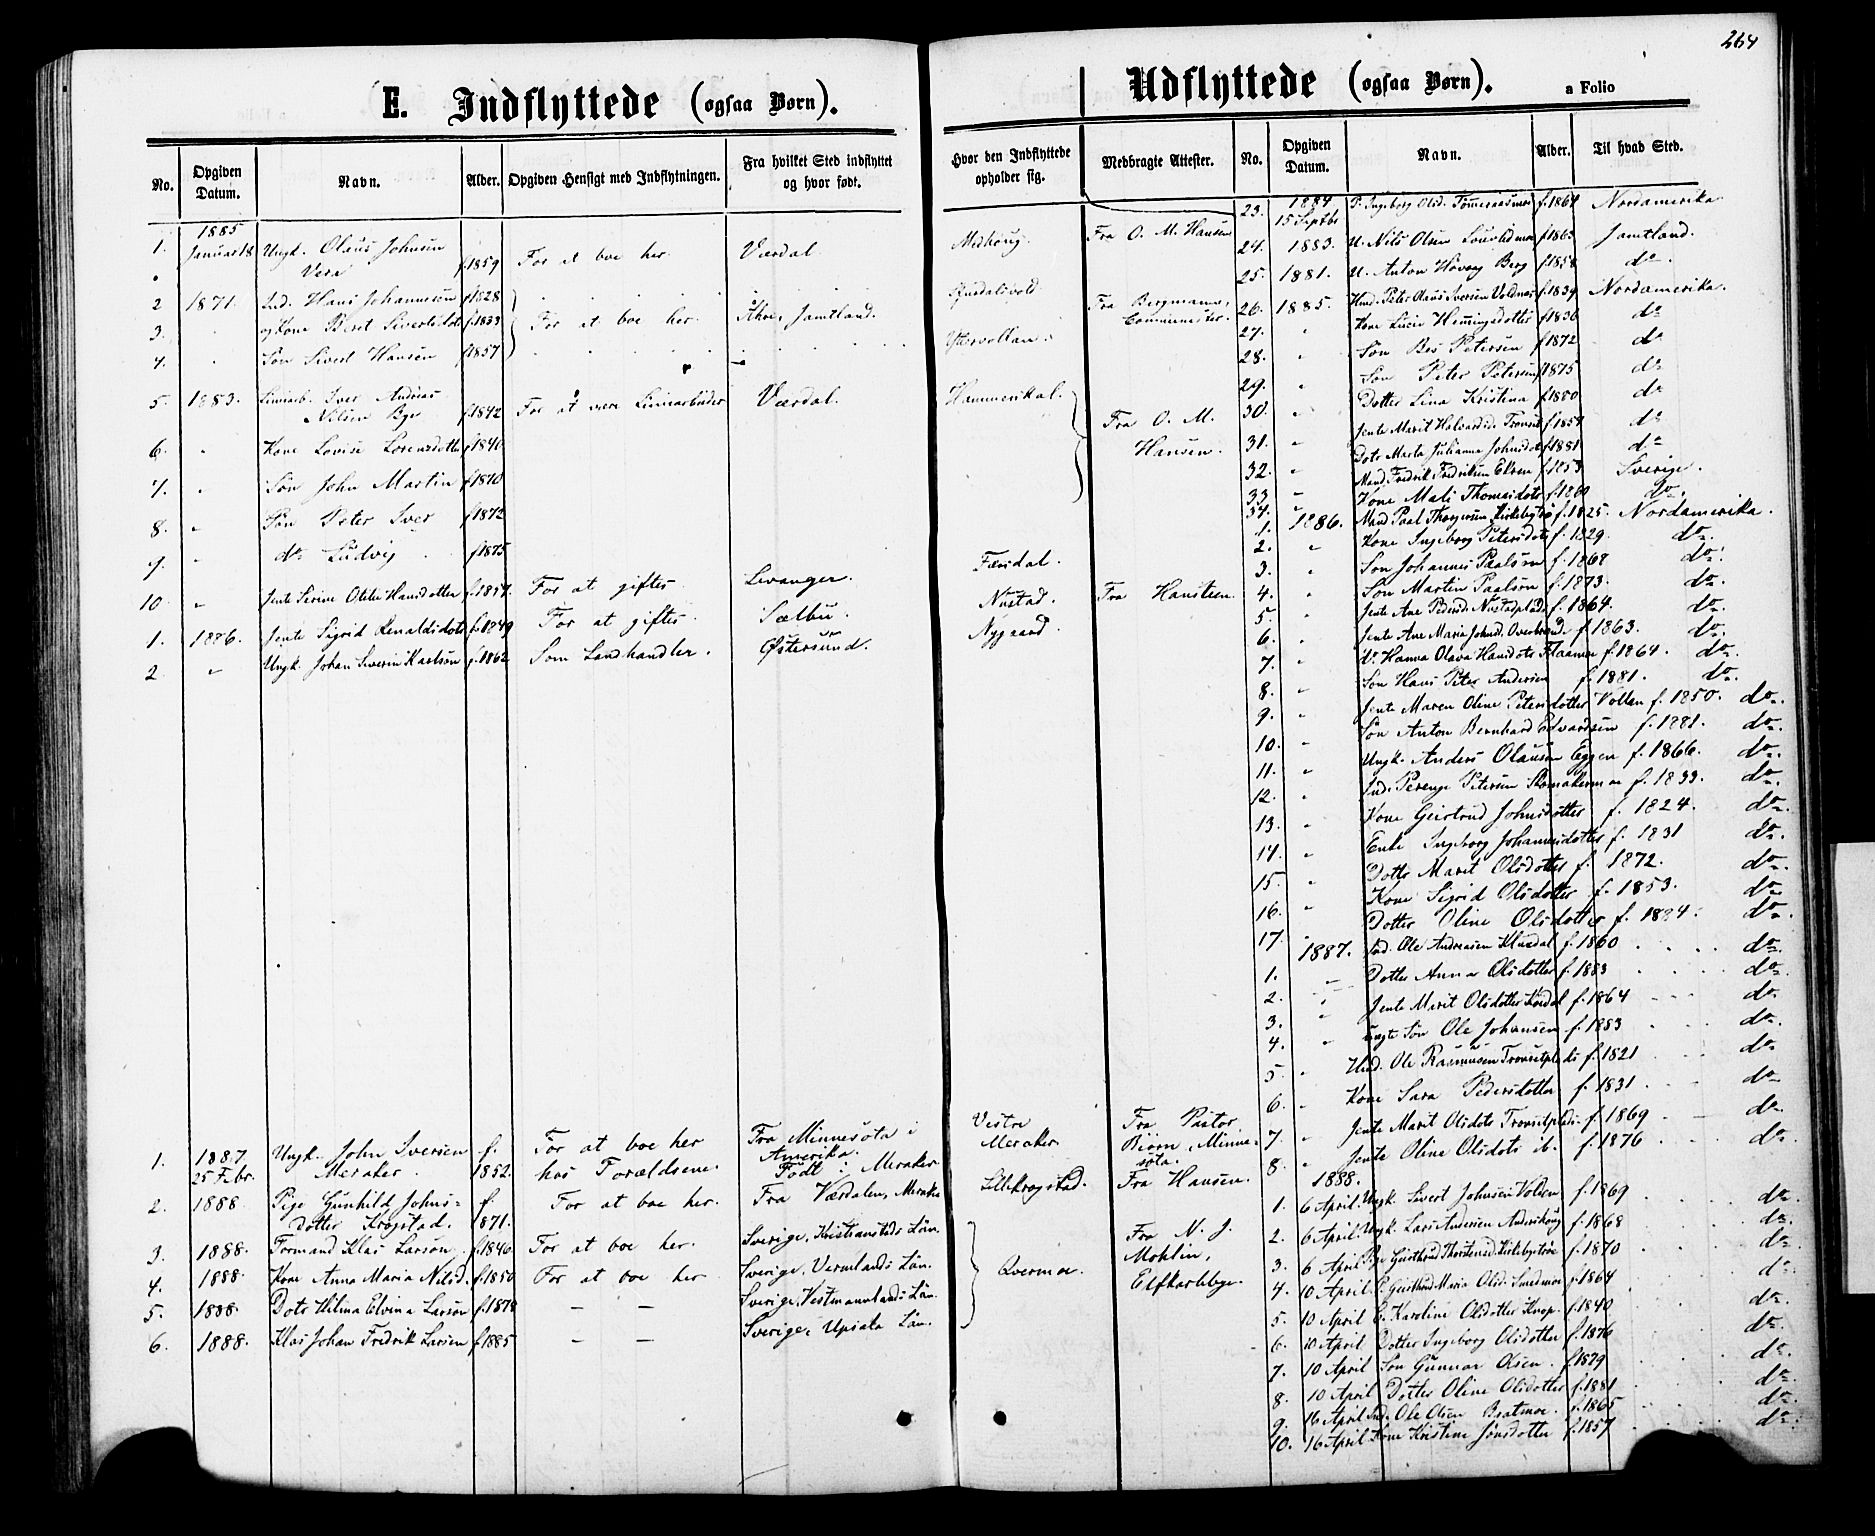 264
E. Indflyttede (ogsaa Børn).
No.
Opgiven Datum.
Navn.
Alder.
Opgiven Hensigt med Indflytningen.
Fra hvilket Sted indflyttet og hvor født.
Hvor den Indflyttede opholder sig.
Medbragte Attester.
1885
1. Januar 18 Ungk. Olaus Johnsen f.1859 For at boe her. Værdal. Medhaug. Fra O. M. Hansen
Vera
2 1871. Ind. Hans Johannesen f.1828
3. og Kone Beret Sivertsdtr f.1833 For at boe her. Åhre, Jamtland. Fra Bergmann,
4. Søn Sivert Hansen f.1857
5. 1883. Liniearb. Iver Andreas
Nilsen Bye f.1842 For at være Liniearbeider Værdal. Hammerskal. Fra O. M.
6. Kone Lovise Lorensdotter f.1840 Hansen.
7. Søn John Martin f.1870
8. Søn Peter Iver f.1872
9. do Ludvig f.1875 Færsdal.
10. Jente Serine Oline Hansdotter f.1857 For at giftes Levanger. Nustad. Fra Hansteen.
1. 1886. Jente Sigrid Renaldsdotr f.1849 For at giftes. Sælbu. Nygaard.
2 Ungk. Johan Severin Karlsson f.1862 Som Landhandler. Østersund.
1. 1887. Ungk. John Iversen f. For at boe her Fra Minnesota i Vestre Fra Pastor
25 Febr. Meraker. 1852. hos Forældrene. Amerika. Meraker Biørn, Minne=
Født i Meraker sota.
2. 1888 Pige Gunhild Johns= f. For at boe her. Fra Værdalen, Meraker Lillekrogstad. Fra Hansen.
dotter Krogstad. 1871.
3. 1888. Formand Klas Larson f.1846 For at boe her. Sverige, Kristianstads Län. Fra N. J.
4. 1888. Kone Anna Maria Nilsd. f.1850 For at boe her Sverige, Vermlands Län. Qvernmoe. Mohlin,
5. 1888. Dotr Hilma Elvina Larson f.1878 — — Sverige, Vestmannlands Län. Elfkarleby.
6. 1888. Klas Johan Fredrik Larson f.1885 — — Sverige, Upsala Län.
Udflyttede (ogsaa Børn). a Folio
No.
Opgiven Datum.
Navn.
Alder.
Til hvad Sted.
1884
23. 15 Septbr P. Ingeborg Olsd. Tømmeraasmoe f.1864 Nordamerika
24. 1883. U. Nils Olsen f.1863 Jamtland.
25. 1881. U. Anton Hoveng Berg f.1858 do
26. 1885. Peter Olaus Iversen Voldmoe f.1839 Nordamerika.
27. Kone Lucie Henningsdotter f.1836 do
28. Søn Peter Petersen f.1872 do
29. Søn Peter Petersen f.1875 do
30. Dotter Lina Kristina f.1880 do
31. Jente Marit Halvardsd. f.1859 do
32. Dotr Marta Julianna Johnsdotr f.1881 do
33. Mand Fredrik Fredriksen f.1853 Sverige.
34. Kone Mali Thomasdotr f.1860 do
1. 1886. Mand Paal Thorgersen Kirkebytrø f.1825. Nordamerika.
2. Kone Ingeborg Petersdotr f.1829. do
3. Søn Johannes Paalsen f.1868 do
4. Søn Martin Paalsøn f.1873. do
5. Jente Ane Pedersd. Nustadplads f.1864. do
6. Jente Ane Maria Johnsd. f.1863. do
7. do Hanna Olava Hansdotr Flaamoe f.1864. do
8. Søn Hans Peter Andersen f.1881. do
9. Jente Maren Oline Petersdotter Vollan f.1850. do
10. Søn Anton Bernhard Edvardsen f.1881. do
11. Ungk. Anders Olausen Eggen f.1866. do
12. Ind. Petersen Skomakermoe f.1833. do
13. Kone Gjertrud Johnsdotter f.1824. do
14. Enke Ingeborg Johannesdotter f.1831 do
15. Dotter Marit Olsdotter f.1872. do
16. Kone Sigrid Olsdotter f.1853. do
17. Dotter Oline Olsdotter f.1884. do
1. 1887. Ind. Ole Andreasen Klusdal f.1860 do
2. Dotter Anna Olsdotter f.1883 do
3. Jente Marit Olsdotter f.1864 do
4. uægte Søn Ole Johansen f.1883 do
5. Ind. Ole Rasmussen Tronsetplads f.1821 do
6. Kone Sara Pedersdotter f.1831 do
7. Jente Marit Olsdotr Tronsetplads f.1869 do
8. Jente Oline Olsdotr ib. f.1876 do
1888.
1. 6 April. Ungk. Sivert Johnsen Volden f.1869 do
2. 6 April. Ungk. Lars Andersen f.1868 do
3. 6 April Pige Gurothrud Thorstensd. Kirkebytrøe f.1870 do
4. 10 April. P. Maria Olsd. Smedmoe f.1864 do
5. 10 April E. Karoline Olsdotter Krop. f.1840 do
6. 10 April Dotter Ingeborg Olsdotter f.1876 do
7. 10 April Søn Gunnar Olsen. f.1879 do
8. 10 April Dotter Oline Olsdotter f.1881 do
9. 16 April Ind. Ole Olsen Bratmoe. f.1865 do
10. 16 April Kone Kristine Jonsdotter f.1857 do